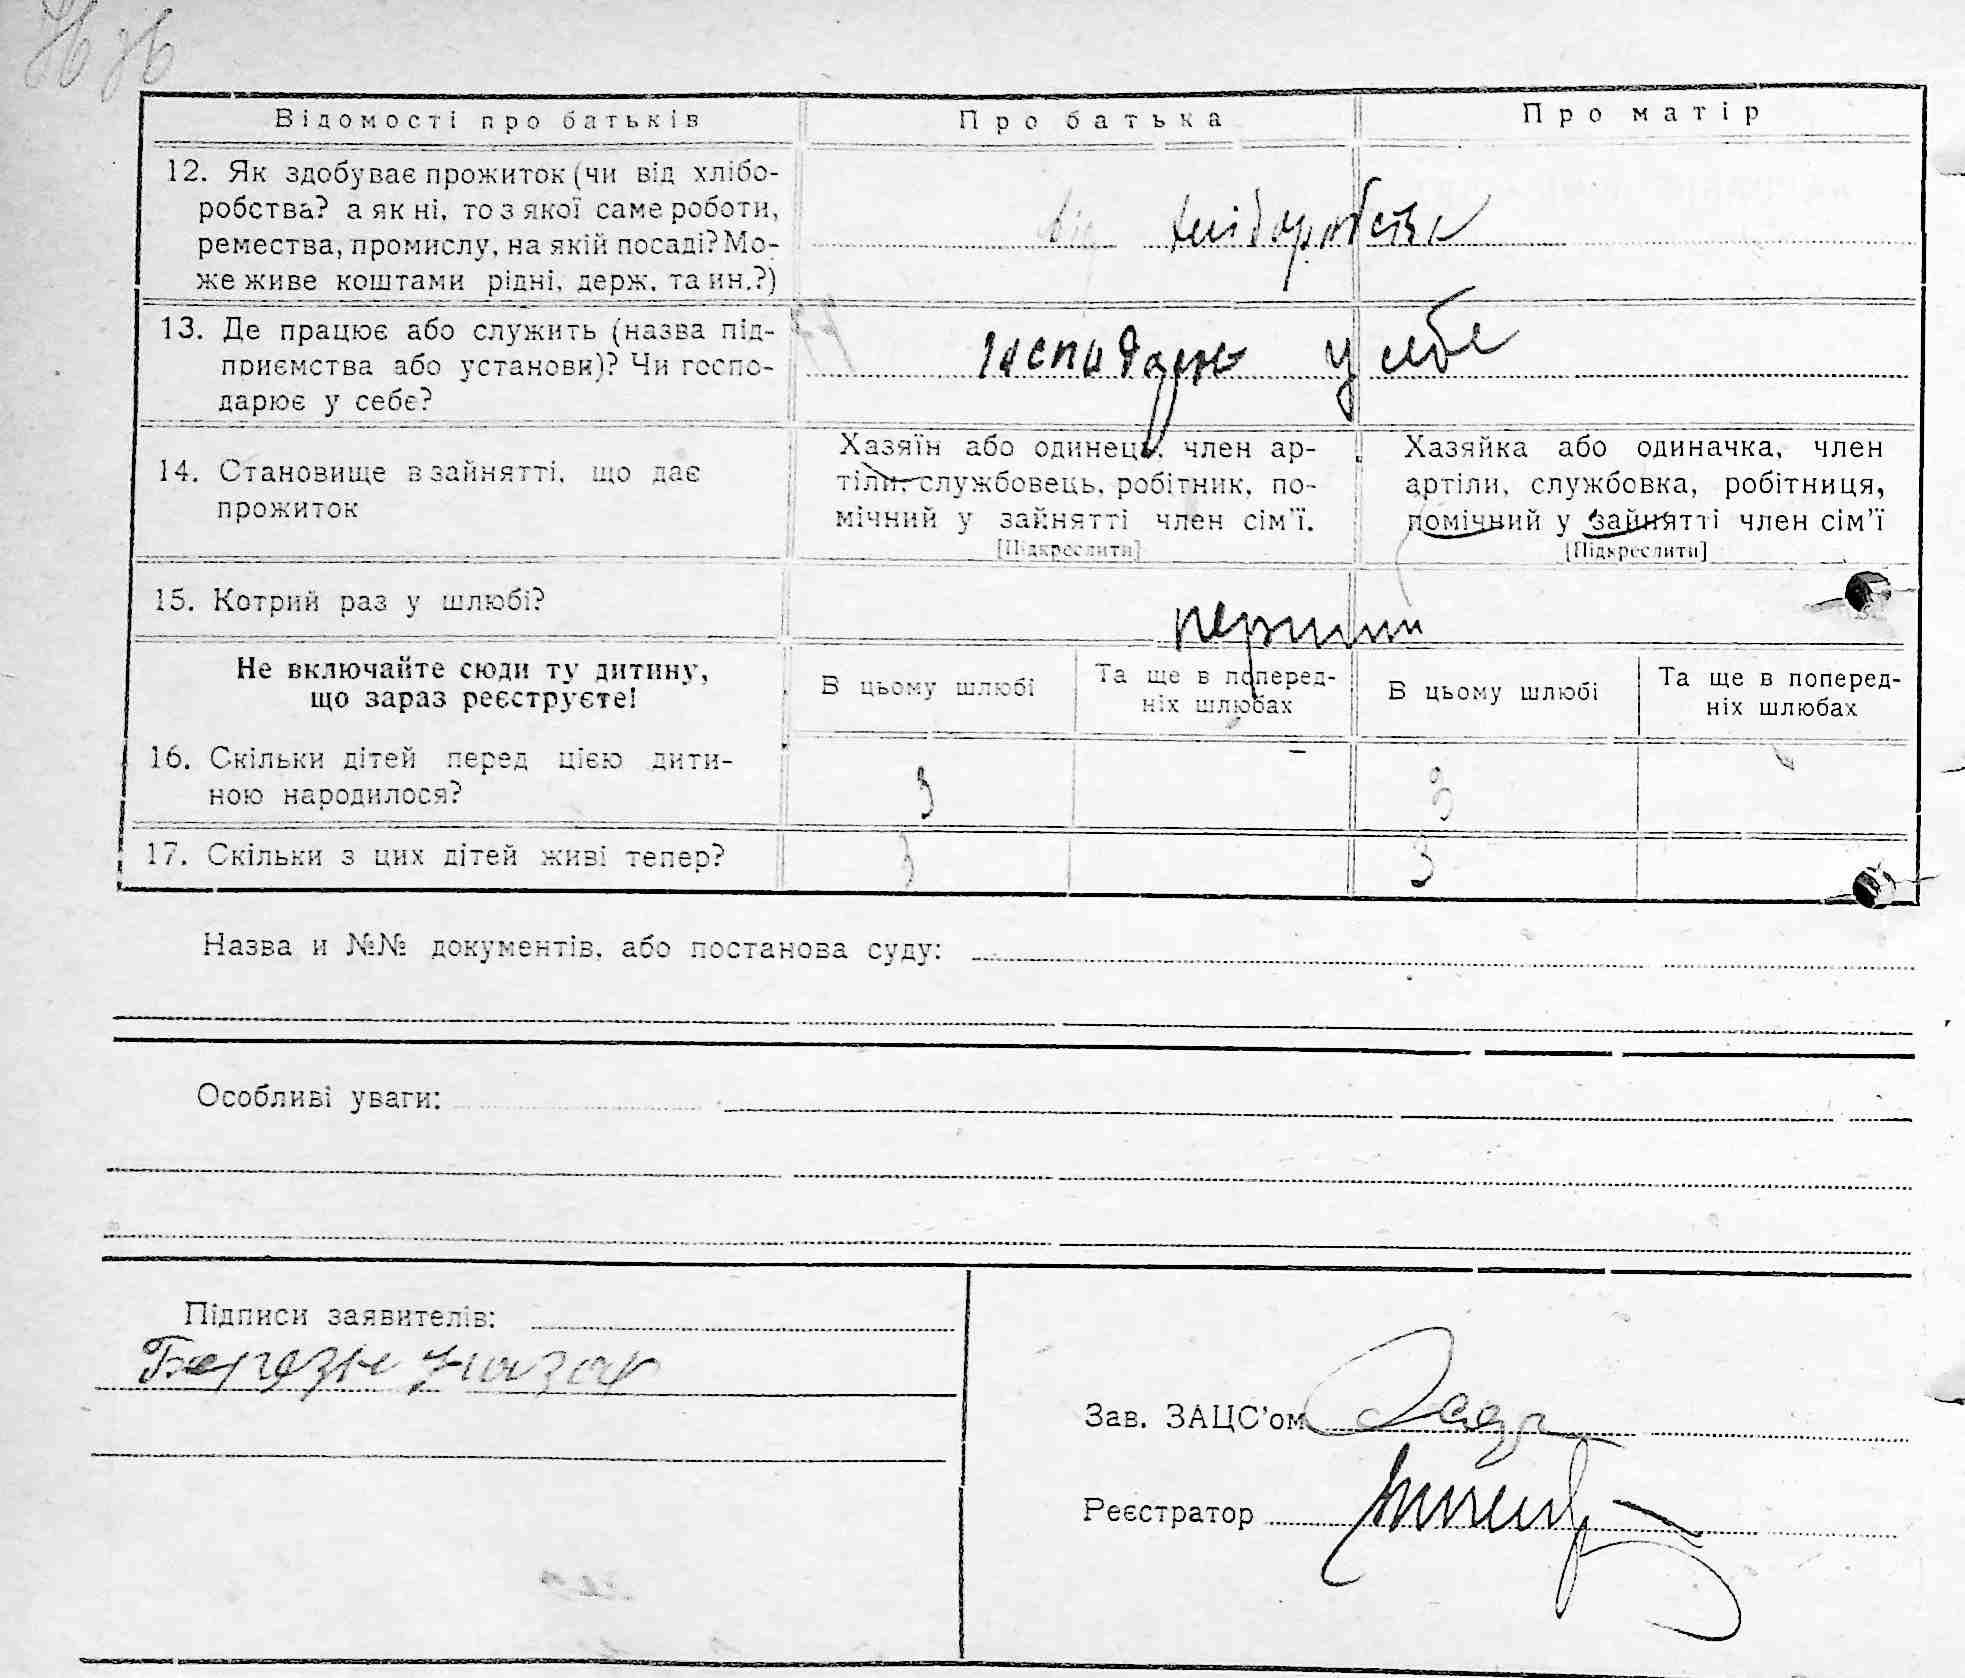 Відомості про батьків Про батька Про матір
12. Як здобуває прожиток (чи від хлібо-
робства? а як ні, то з якої саме роботи,
ремества, промислу, на якій посаді? Мо-
же живе коштами рідні, держ. та ин.?)
від хліборобства
13. Де працює або служить (назва під-
приємства або установи)? Чи госпо-
дарює у себе?
господарює у себе
14. Становище в зайнятті, що дає
прожиток
Хазяїн або одинець, член ар-
тіли, службовець, робітник, по-
мічний у зайнятті член сім’ї.
[Підкреслити]
Хазяйка або одиначка, член
артіли, службовка, робітниця,
помічний у зайнятті член сім’ї
[Підкреслити]
15. Котрий раз у шлюбі?
Не включайте сюди ту дитину,
що зараз реєструєте!
В цьому шлюбі
Та ще в поперед-
ніх шлюбах
В цьому шлюбі
Та ще в поперед-
ніх шлюбах
16. Скільки дітей перед цією дити-
ною народилося?
3 – 3
17. Скільки з цих дітей живі тепер?
3 3
Назва и №№ документів, або постанова суду:
Особливі уваги:
Підписи заявителів:
Зав. ЗАЦС’ом
Реєстратор